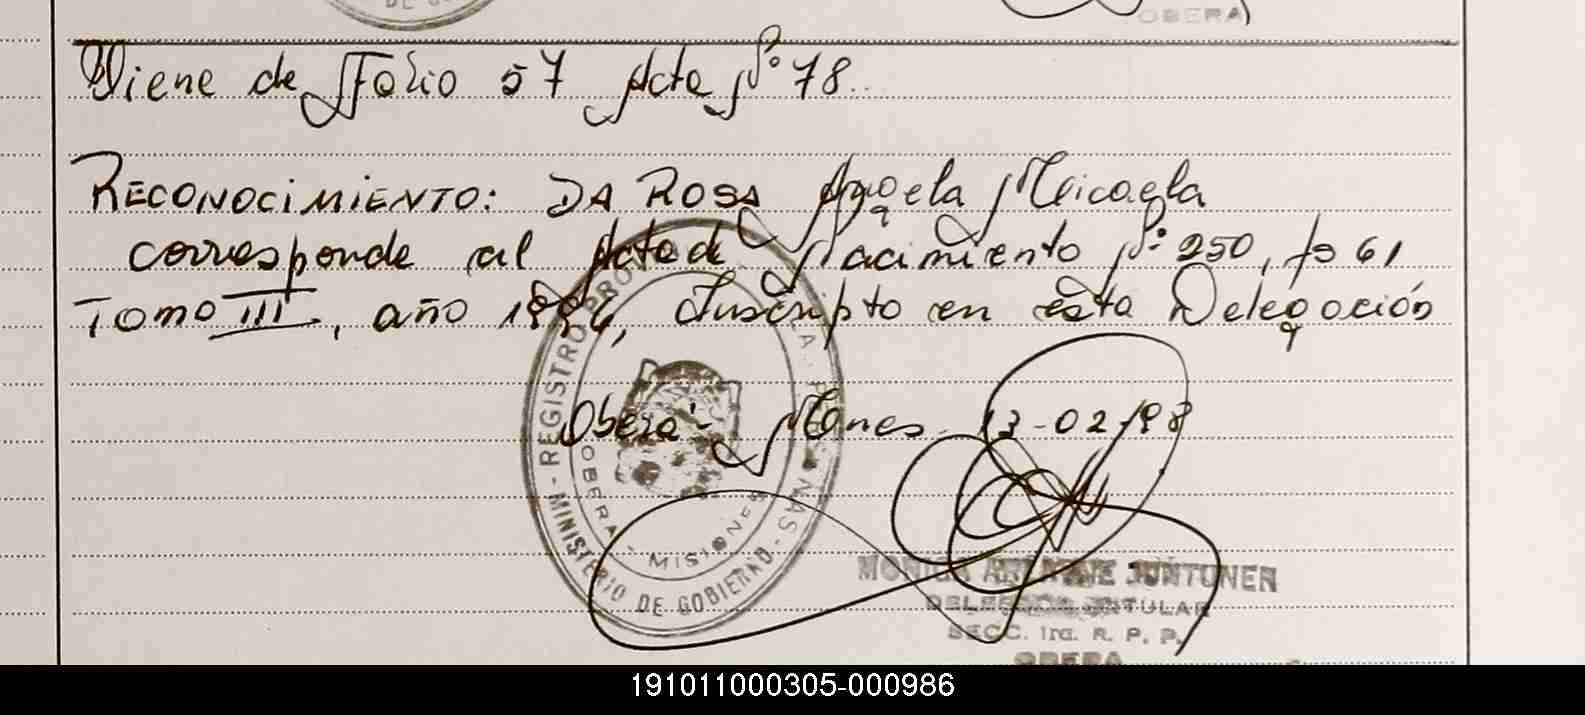 OBERA)
Viene de Folio 57 Acta Nº 78.
RECONOCIMIENTO: DA ROSA Angela Micaela
corresponde al Acta de Nacimiento Nº 250, fs 61
Tomo III, año 1994, Inscripto en esta Delegación
Oberá - Mnes. 13-02-98
- REGISTRO PROV DE LAS PERSONAS - MINISTERIO DE GOBIERNO
OBERA - MISIONES
MONICA JUNTUNER
DELEGADA TITULAR
SECC. 1ra. R. P. P.
OBERA
191011000305-000986